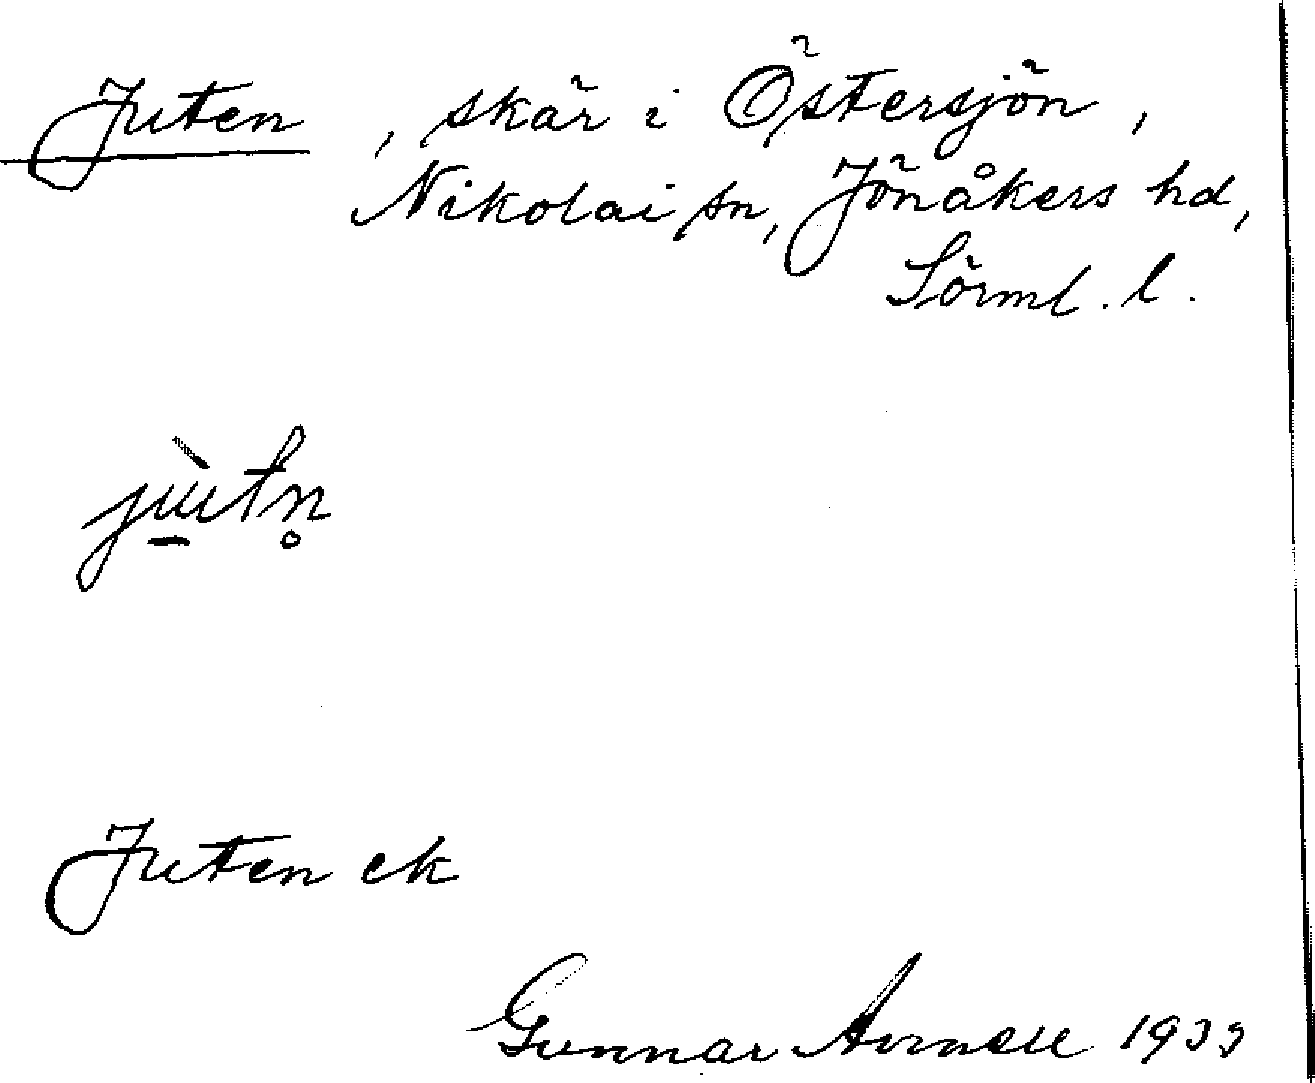 Juten, skär i Östersjön,
Nikolai sn, Jönåkers hd,
Sörml. l.
jùtn̥
Juten ek
Gunnar 1933